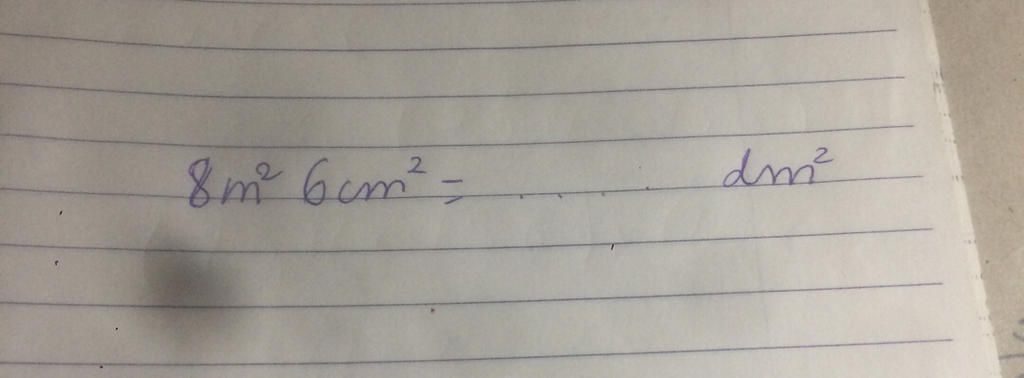 8m² 6cm² = ..... dm²